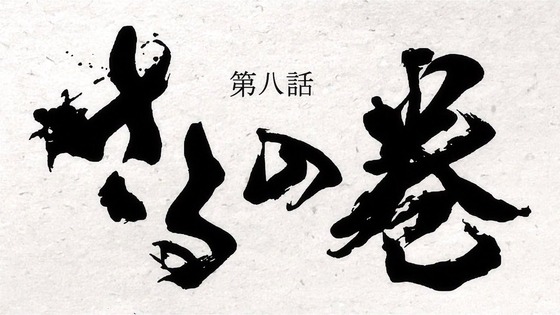 第八話
さるの巻